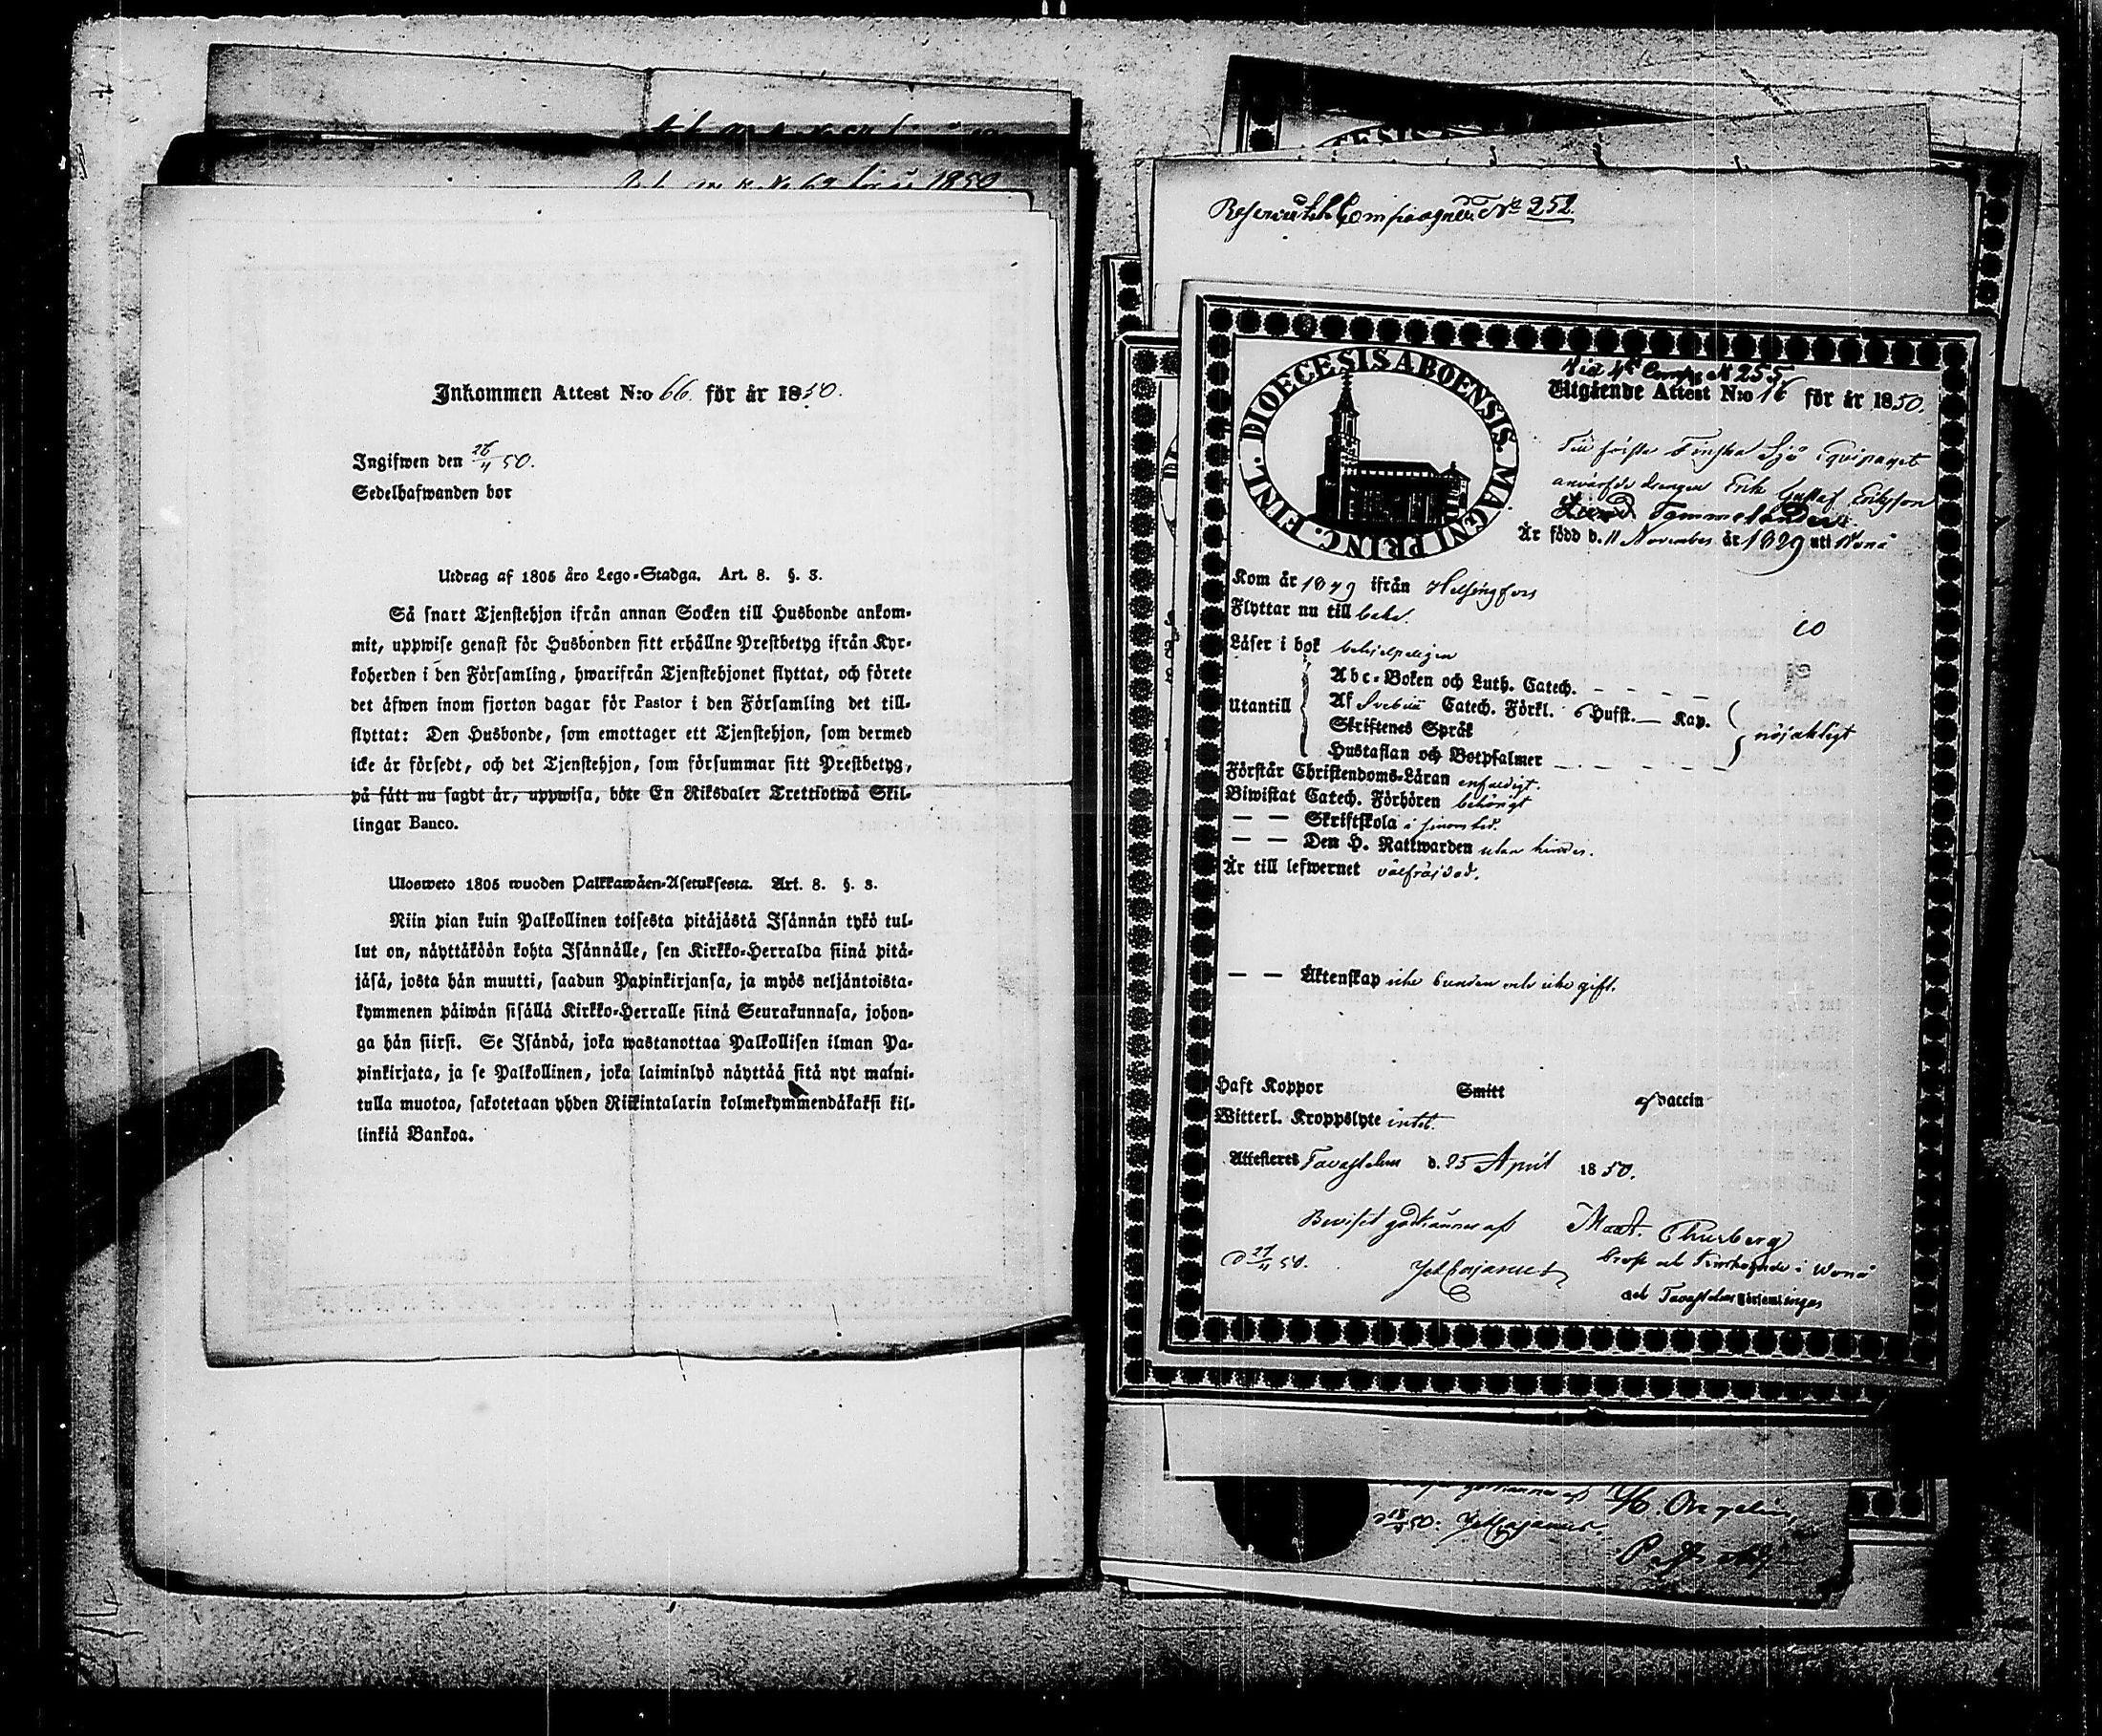 1850
Inkommen Attest N:o 66. för år 1850.
Ingifwen den 26/4 50.
Sedelhafwanden bor
Utdrag af 1805 års Lego-Stadga. Art. 8. §. 3.
Så snart Tjenstehjon ifrån annan Socken till Husbonde ankom-
mit, uppwise genast för Husbonden sitt erhållne Prestbetyg ifrån Kyr-
koherden i den Församling, hwarifrån Tjenstehjonet flyttat, och förete
det äfwen inom fjorton dagar för Pastor i den Församling det till-
flyttat: Den Husbonde, som emottager ett Tjenstehjon, som dermed
icke är försedt, och det Tjenstehjon, som försummar sitt Prestbetyg,
på sätt nu sagdt är, uppwisa, böte En Riksdaler Trettiotwå Skil-
lingar Banco.
Ulosweto 1805 wuoden Palkkawäen-Asetuksesta. Art. 8. §. 3.
Niin pian kuin Palkollinen toisesta pitäjästä Isännän tykö tul-
lut on, näyttäköön kohta Isännälle, sen Kirkko-Herralda siinä pitä-
jäsä, josta hän muutti, saadun Papinkirjansa, ja myös neljäntoista-
kymmenen päiwän sisällä Kirkko-Herralle siinä Seurakunnasa, johon-
ga hän siirsi. Se Isändä, joka wastanottaa Palkollisen ilman Pa-
pinkirjata, ja se Palkollinen, joka laiminlyö näyttää sitä nyt maini-
tulla muotoa, sakotetaan yhden Riikintalarin kolmekymmendäkaksi kil-
linkiä Bankoa.
Compagnie N:o 252.
N 255
DIOECESIS ABOENSIS. MAGNI PRINC. FINL.
Utgående Attest N:o 16 för år 1850.
Till förste Finska Sjö Equipaget
anvärfde drengen Erik Gustaf Eriksson
Är född d. 11 November år 1829 uti Wånå
Kom år 1849 ifrån Helsingfors
Flyttar nu till bem.
Läser i bok behjelpeligen
Abc-Boken och Luth. Catech.
Utantill
Af Svebilii Catech. Förkl. 6 Hufst. Kap.
nöjaktigt
Skriftenes Språk
Hustaflan och Botpsalmer
Förstår Christendoms-Läran enfaldigt.
Biwistat Catech. Förhören behörigt
— — Skriftskola
— — Den H. Nattwarden utan hinder.
Är till lefwernet välfräjdad.
— — Äktenskap icke bunden och icke gift.
Haft Koppor Smitt af vaccin
Witterl. Kroppslyte intet.
Attesteres Tavastehus d. 25 April 1850.
Beviset godkännes af
Thurberg
Prost och Kyrkoherde i Wånå
d 27/4 50.
och Tavastehus församlingar